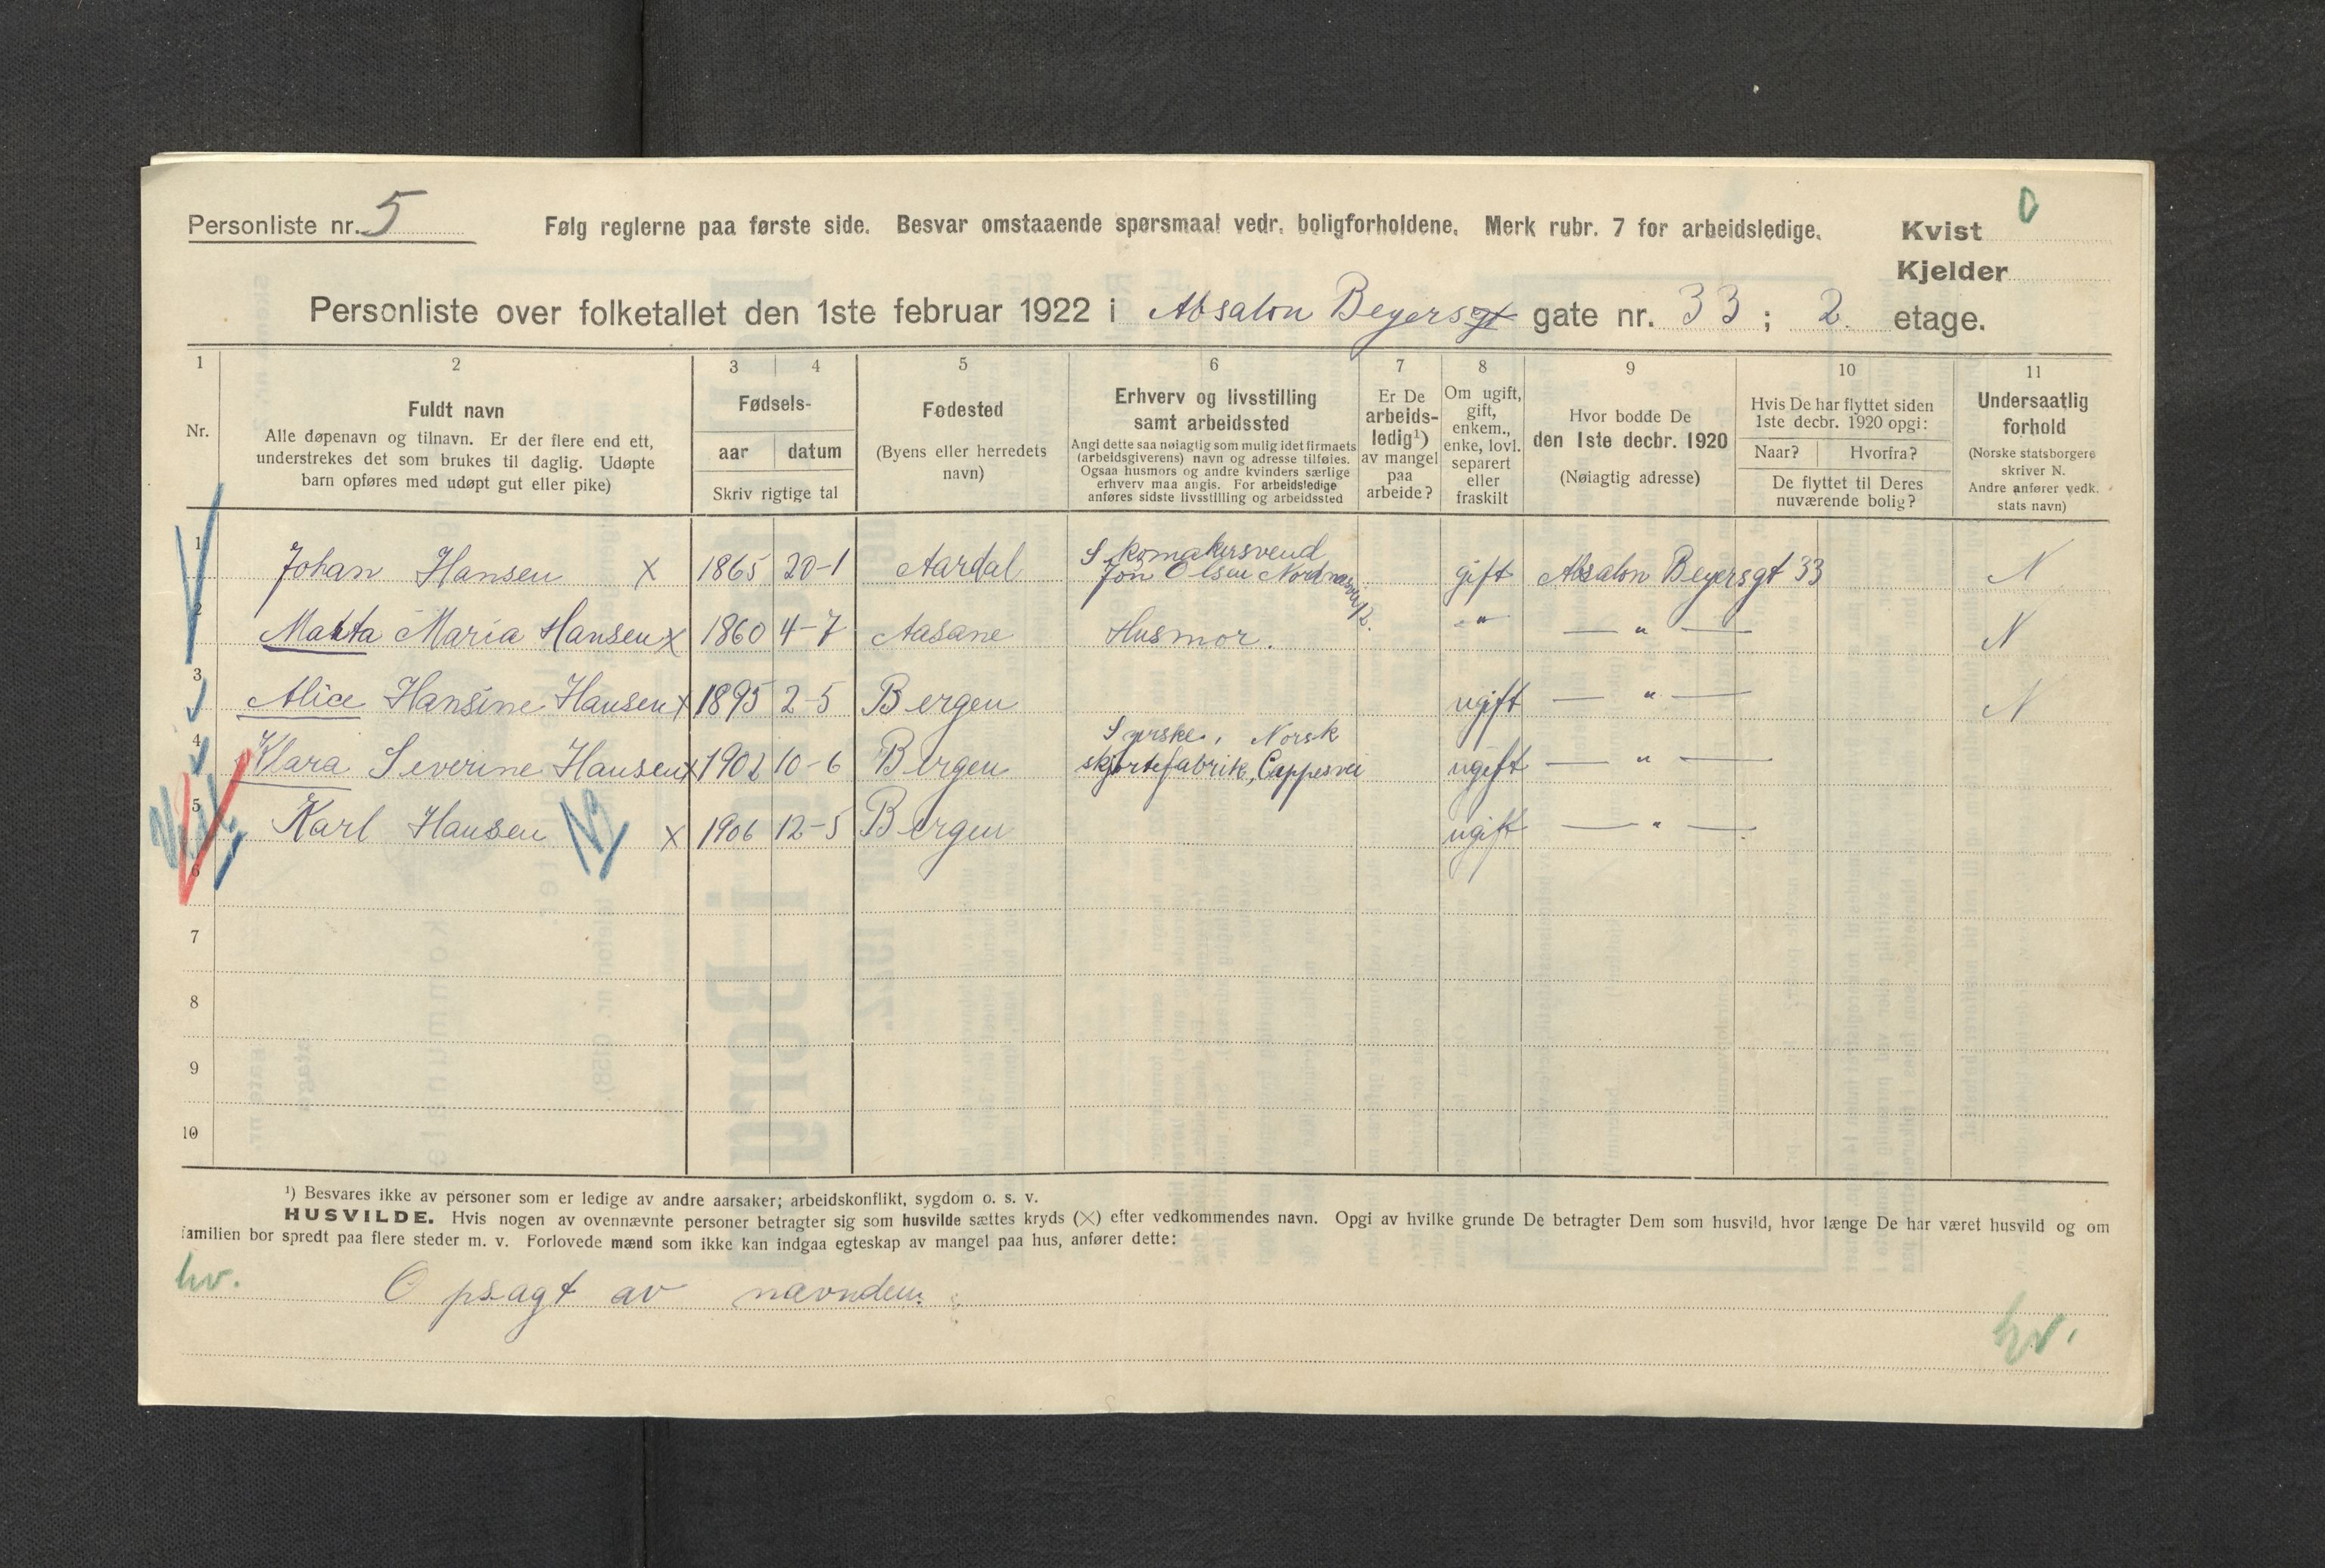 Personliste nr. 5 Følg reglerne paa første side. Besvar omstaaende spørsmaal vedr. boligforholdene. Merk rubr. 7 for arbeidsledige. Kvist
Kjelder
Personliste over folketallet den 1ste februar 1922 i Absalon Beyersgt gate nr. 33 ; 2. etage.
1 2 3 4 5 6 7 8 9 10 11
Nr.
Fuldt navn
Alle døpenavn og tilnavn. Er der flere end ett,
understrekes det som brukes til daglig. Udøpte
barn opføres med udøpt gut eller pike)
Fødsels-
aar datum
Skriv rigtige tal
Fødested
(Byens eller herredets
navn)
Erhverv og livsstilling
samt arbeidssted
Angi dette saa nøiagtig som mulig idet firmaets
(arbeidsgiverens) navn og adresse tilføies.
Ogsaa husmors og andre kvinders særlige
erhverv maa angis. For arbeidsledige
anføres sidste livsstilling og arbeidssted
Er De
arbeids-
ledig¹)
av mangel
paa
arbeide?
Om ugift,
gift,
enkem.,
enke, lovl.
separert
eller
fraskilt
Hvor bodde De
den 1ste decbr. 1920
(Nøiagtig adresse)
Hvis De har flyttet siden
1ste decbr. 1920 opgi:
Naar? Hvorfra?
De flyttet til Deres
nuværende bolig?
Undersaatlig
forhold
(Norske statsborgere
skriver N.
Andre anfører vedk.
stats navn)
1 Johan Hansen x 1865 20-1 Aardal Skomakersvend Jon Olsen gift Absalon Beyersgt 33 N
2 Marta Maria Hansen x 1860 4-7 Aasane Husmor. -"- — " — N
3 Alice Hansine Hansen x 1895 2-5 Bergen ugift — " — N
4 Klara Severine Hansen x 1902 10-6 Bergen Syerske, Norsk skjortefabrik, Cappesvei ugift — " —
5 Karl Hansen N x 1906 12-5 Bergen ugift — " —
6
7
8
9
10
¹) Besvares ikke av personer som er ledige av andre aarsaker; arbeidskonflikt, sygdom o. s. v.
HUSVILDE. Hvis nogen av ovennævnte personer betragter sig som husvilde sættes kryds (×) efter vedkommendes navn. Opgi av hvilke grunde De betragter Dem som husvild, hvor længe De har været husvild og om
familien bor spredt paa flere steder m. v. Forlovede mænd som ikke kan indgaa egteskap av mangel paa hus, anfører dette:
hv. Opsagt av nævnden.
hv.